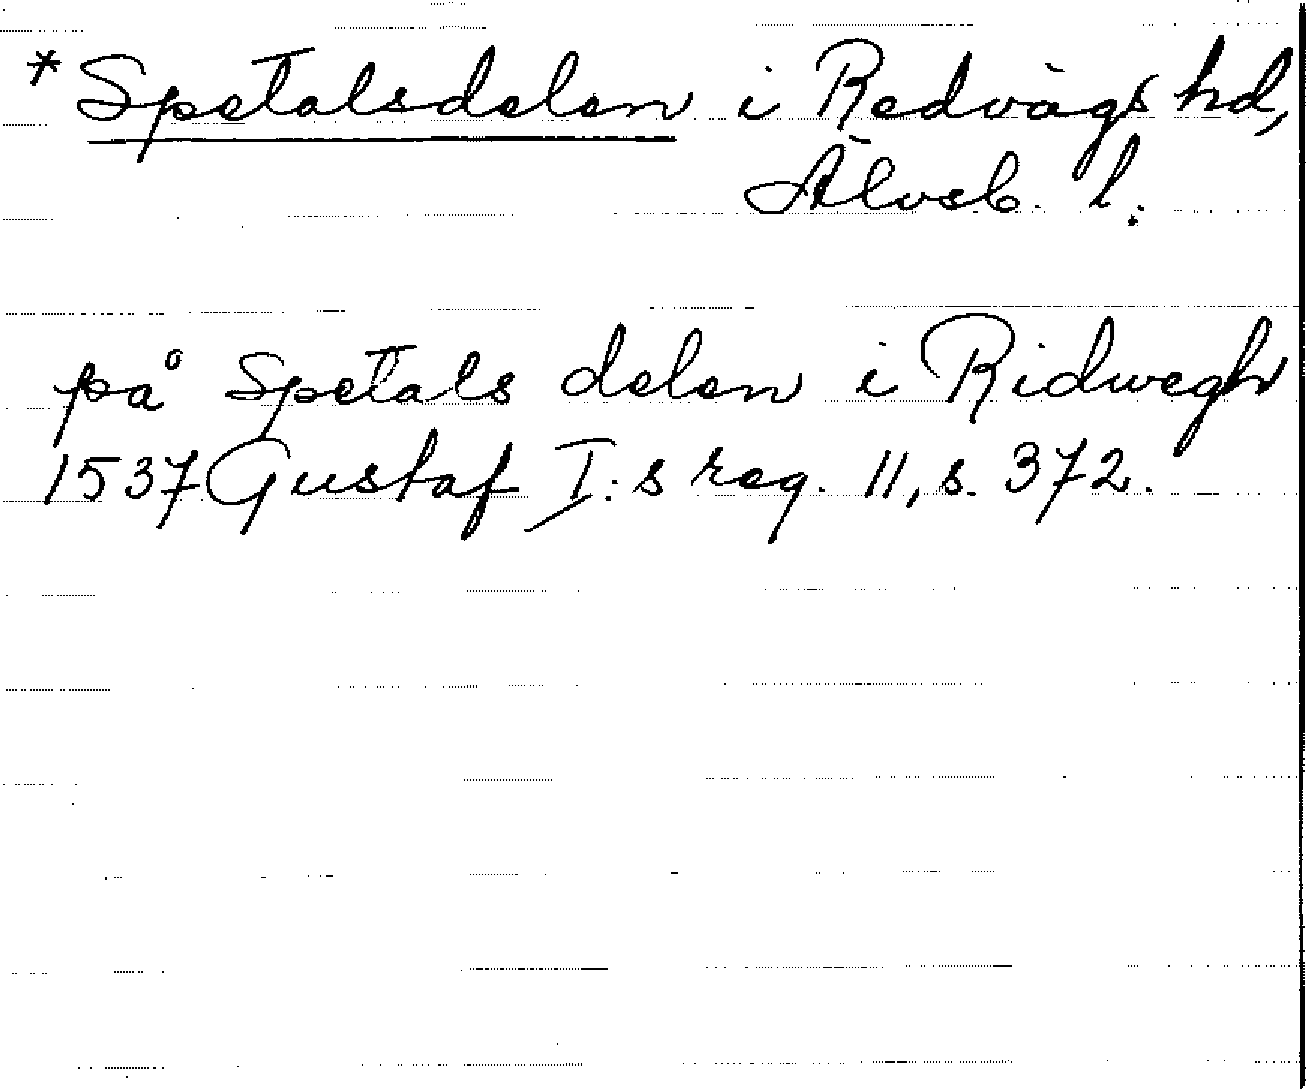 * Spetalsdelen i Redvägs hd,
Älvsb. l.
på Spetals delen i Ridwegh
1537 Gustaf I:s reg. 11, s. 372.